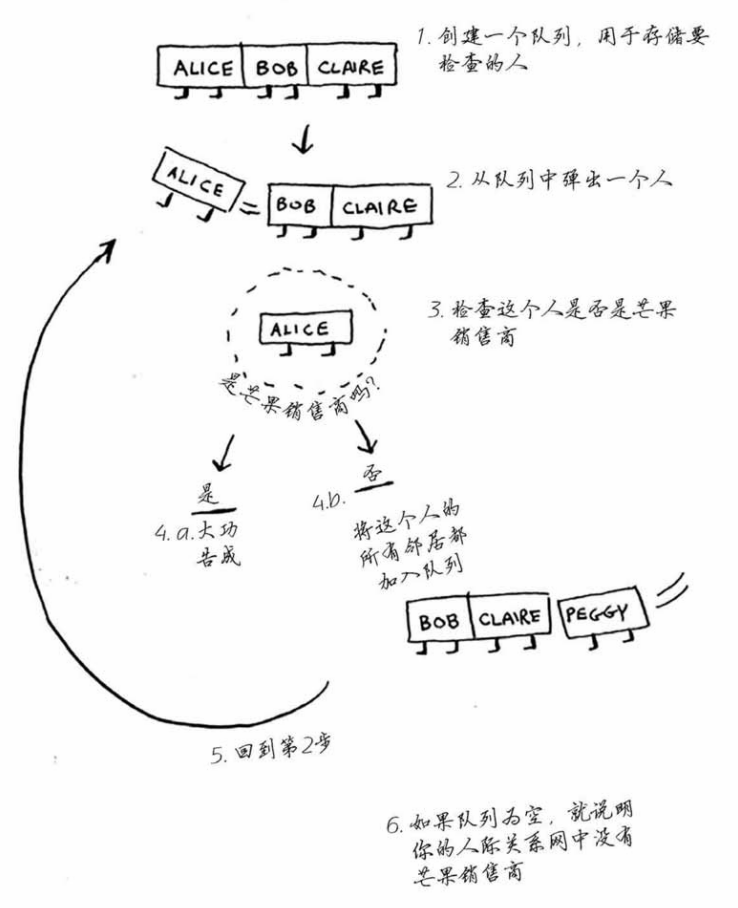 ALICE BOB CLAIRE
1. 创建一个队列，用于存储要
检查的人
ALICE
BOB CLAIRE
2. 从队列中弹出一个人
3. 检查这个人是否是芒果
销售商
ALICE
是芒果销售商吗？
是
4.a.大功
告成
否
4.b.
将这个人的
所有邻居都
加入队列
BOB CLAIRE PEGGY
5. 回到第2步
6. 如果队列为空，就说明
你的人际关系网中没有
芒果销售商